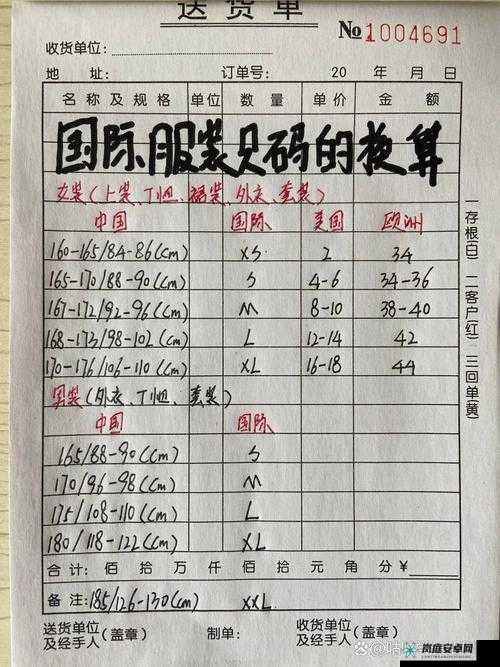 送货单
№1004691
收货单位:
地 址: 订单号: 20 年 月 日
名称及规格 单位 数量 单价 金额
国际服装尺码的换算
女装(上装、T恤、裙装、外衣、套装)
中国 国际 美国 欧洲
160-165/84-86(cm) XS 2 34
165-170/88-90(cm) S 4-6 34-36
167-172/92-96(cm) M 8-10 38-40
168-173/98-102(cm) L 12-14 42
170-176/106-110(cm) XL 16-18 44
男装(外衣、T恤、套装)
中国 国际
165/88-90(cm) S
170/96-98(cm) M
175/108-110(cm) L
180/118-122(cm) XL
合计: 佰 拾 万 仟 佰 拾 元 角 分 ¥
备注:185/126-130(cm) XXL
送货单位及经手人(盖章) 制单: 收货单位及经手人(盖章)
一存根(白) 二客户(红) 三回单(黄)
岚庭安卓网